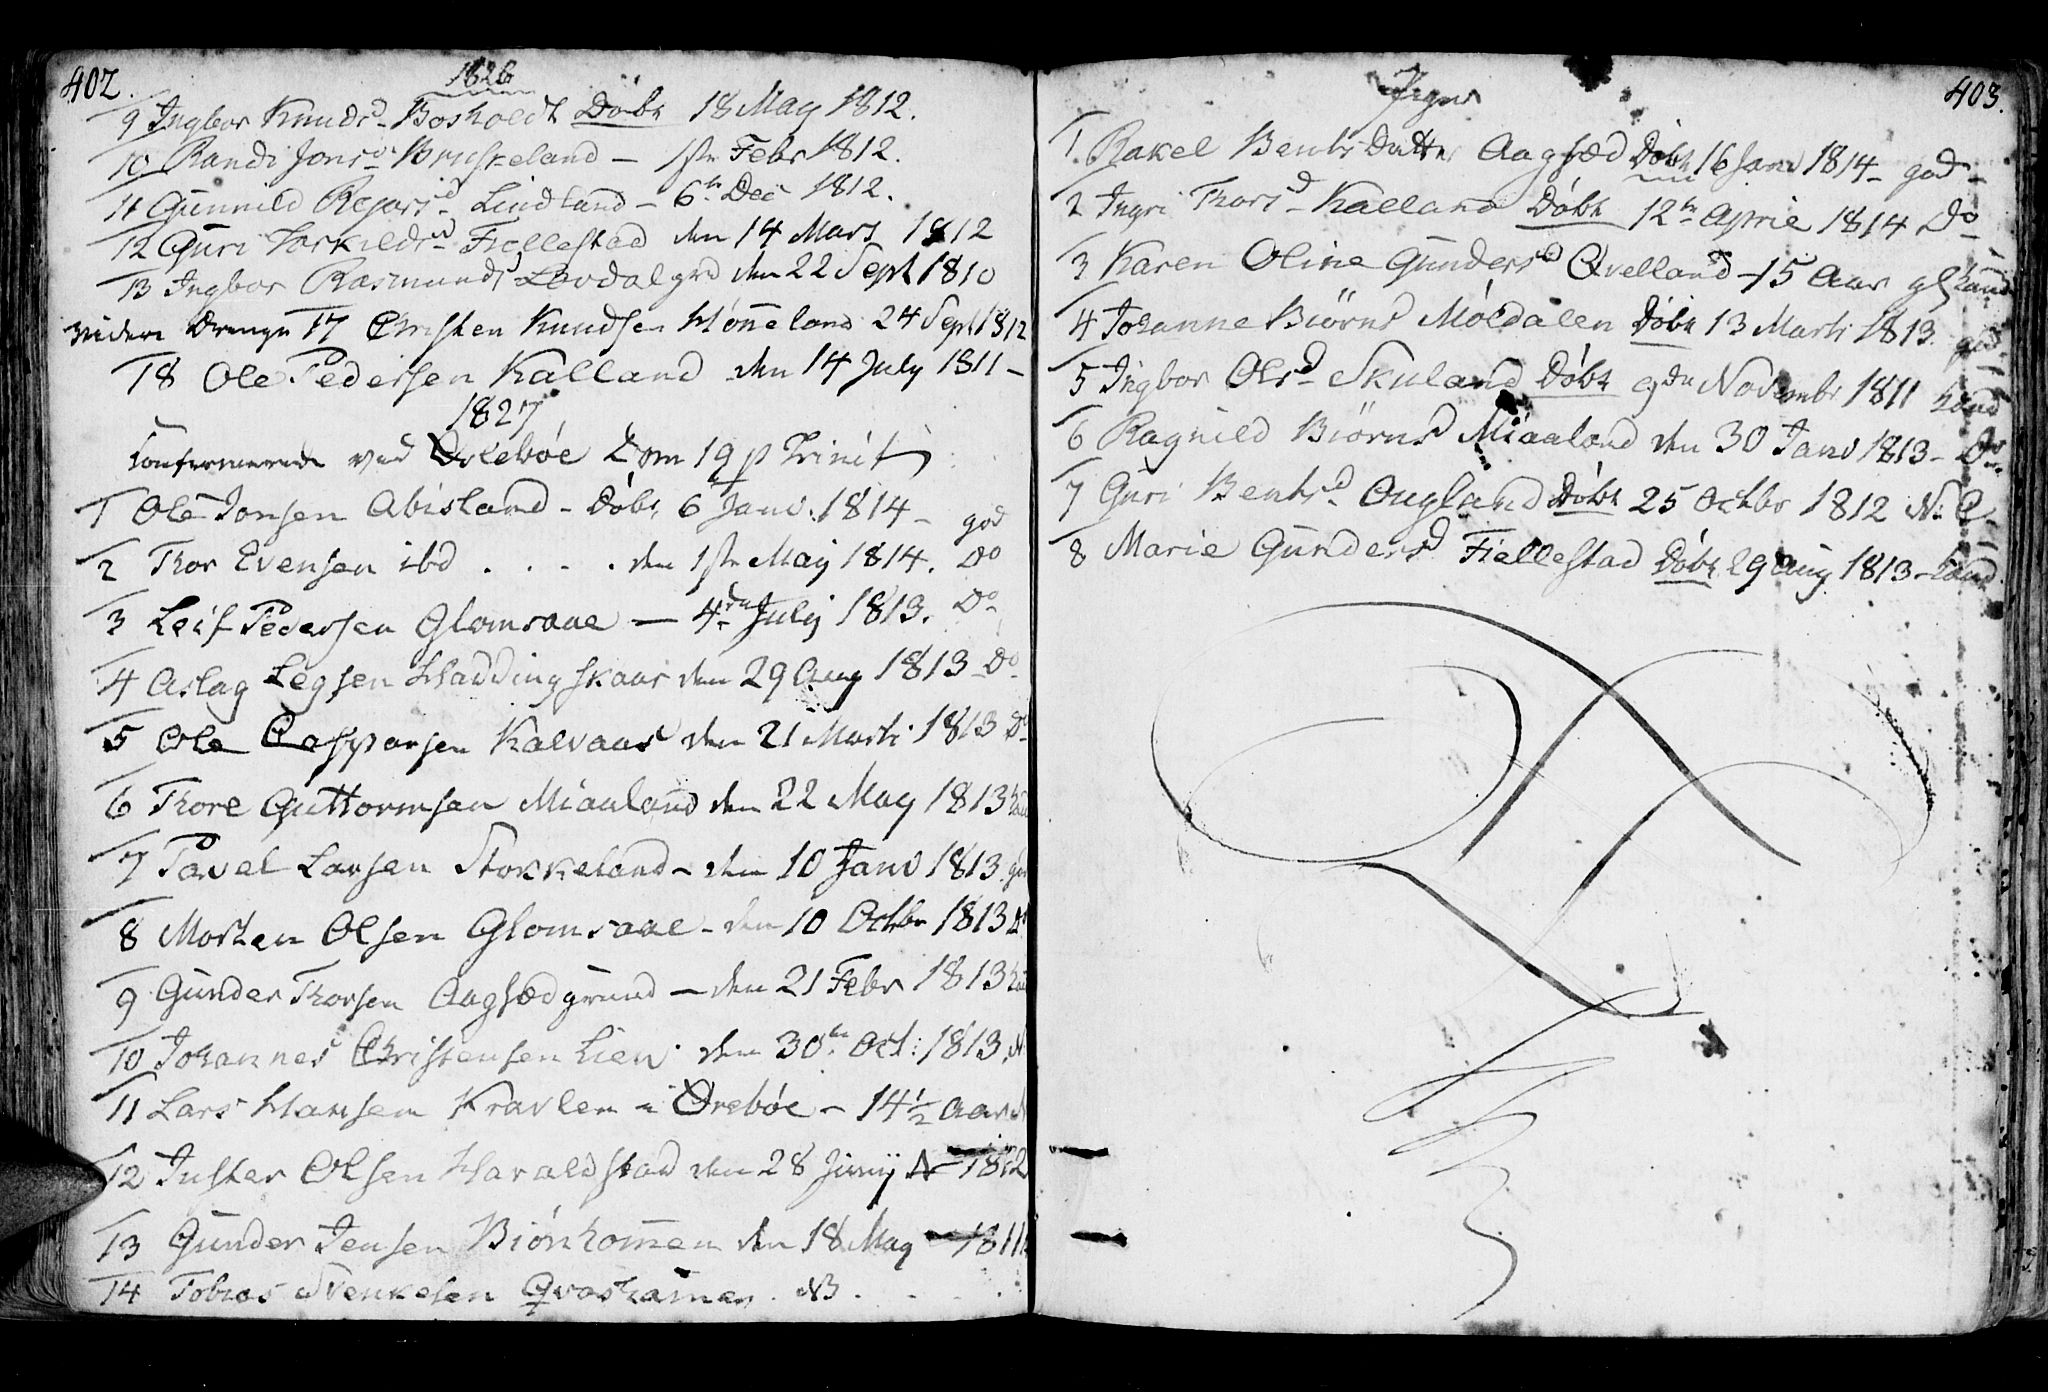 402.
1826
9 Ingbor Knudsd Bosholdt Døbt 18 May 1812.
10 Randi Jonsd Kruskeland – 1ste Febr 1812.
11 Gunnild Rejarsd Lindland – 6te Dec 1812.
12 Guri Torkildsd Fiellestad den 14 Mars 1812
13 Ingbor Rasmusd Lovdal den 22 Sept 1810
videre Drenge 17 Christen Knudsen Hønneland 24 Sept 1812
18 Ole Pedersen Kalland den 14 July 1811 –
1827
Confirmerede ved Ørebøe Dom 19 p Trinit
1 Ole Jonsen Abisland – Døbt 6te Janv. 1814 – god
2 Thor Evensen ibd . . . . den 1ste May 1814. Do
3 Leif Pedersen Glomsaae – 4de July 1813. Do
4 Aslag Legsen Haddingskaar den 29 Aug 1813 Do
5 Ole Caspersen Kalvaas den 21 Marti 1813 Do
6 Thore Guttormsen Miaaland den 22 May 1813
7 Pavel Larsen Stokkeland – den 10 Janv 1813. god
8 Morten Olsen Glomsaae – den 10 Octbr 1813 Do
9 Gunder Thorsen Aagsædgrund – den 21 Febr 1813
10 Johannes Christensen Lien den 30te Oct: 1813. N
11 Lars Hansen Kravlen i Ørebøe – 14 1/2 Aar N
12 Juster Olsen Haraldstad den 28 Junij N 1812
13 Gunder Jensen Biønkommen den 18 May – 1811
14 Tobias Svenkesen Qvashammer . NB . . . .
403.
Piger
1 Rakel Bentsdatter Aagsæd Døbt 16 Janv 1814 – god –
2 Ingri Thorsd Kalland Døbt 12te Aprie 1814 Do
3 Karen Oline Gundersd Qvelland – 15 Aar gl
4 Johanne Biørnsd Møldalen Døbt 13 Marti 1813. god
5 Ingbor Olsd Skuland Døbt 9de Novembr 1811
6 Ragnild Biørnsd Miaaland den 30 Janv 1813 – Do
7 Guri Bentsd Ougland Døbt 25 Octbr 1812 N:
8 Marie Gundersd Fiellestad Døbt 29 Aug 1813 –